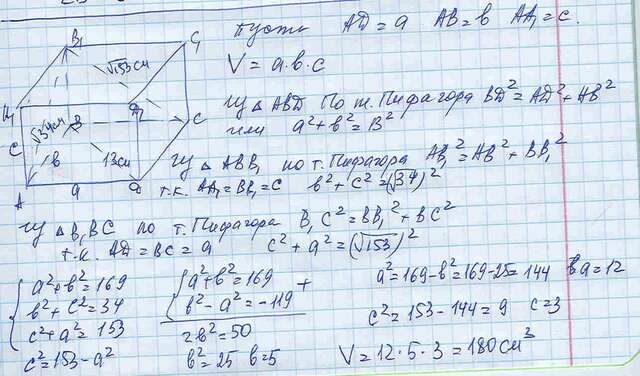 Пусть AD = a AB = в AA₁ = c.
V = a·в·c
Из △ ABD По т. Пифагора BD² = AD² + AB²
или a² + в² = B²
Из △ ABB₁ по т. Пифагора AB₁² = AB² + BB₁²
т.к. AA₁ = BB₁ = c в² + c² = (√34)²
Из △ B₁BC по т. Пифагора B₁C² = BB₁² + BC²
т.к. AD = BC = a c² + a² = (√153)²
B₁
C₁
√153 см
D₁
√34 см
B
C
c
в
13 см
A
a
D
a² + в² = 169
в² + c² = 34
c² + a² = 153
c² = 153 - a²
a² + в² = 169
+
в² - a² = -119
2в² = 50
в² = 25 в = 5
a² = 169 - в² = 169 - 25 = 144 a = 12
c² = 153 - 144 = 9 c = 3
V = 12 · 5 · 3 = 180 см³